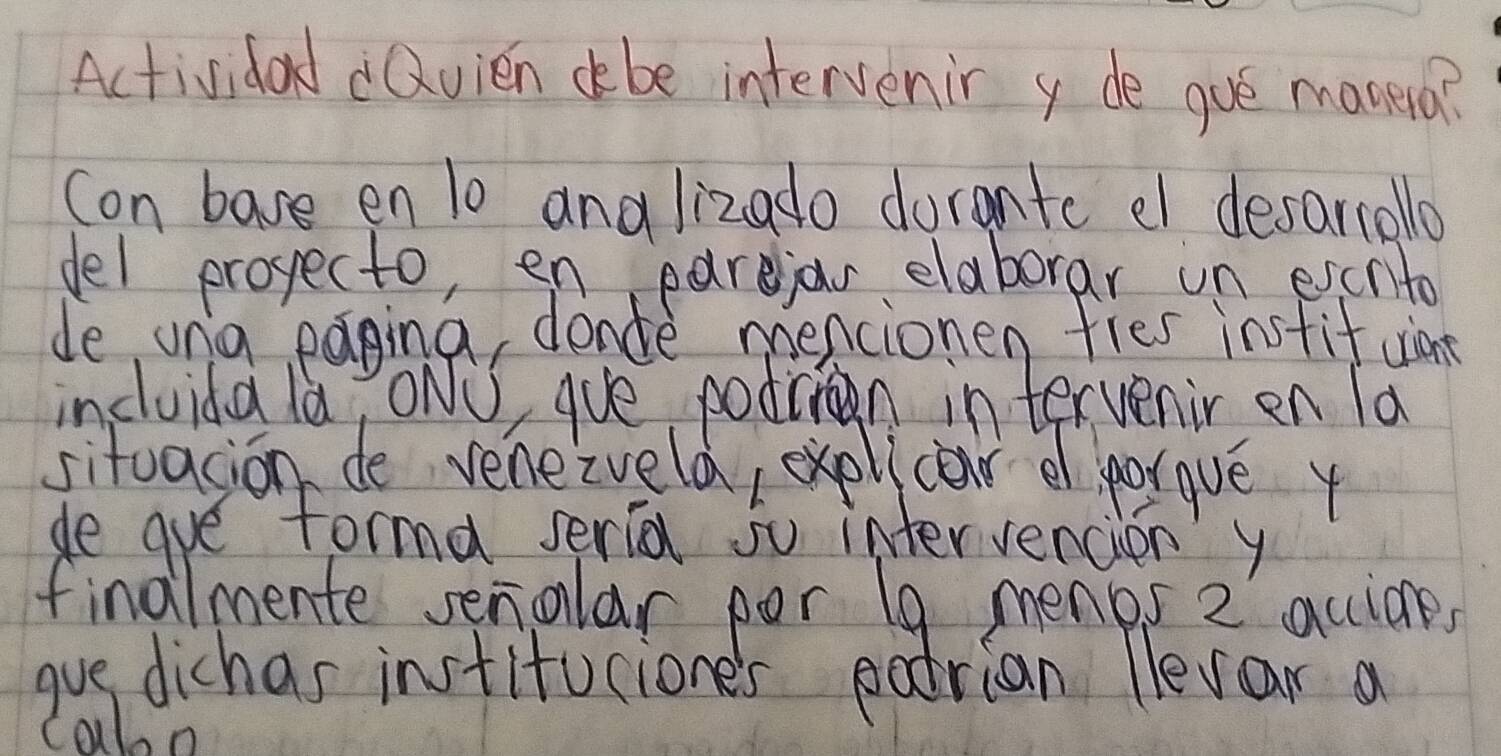 Actividad ¿Quién debe intervenir y de qué manera?
Con base en lo analizado durante el desarrollo
del proyecto, en parejas elaborar un escrito
de una página, donde mencionen tres instituciones
incluida la ONU, que podrían intervenir en la
situación de venezuela, explicar el porqué y
de qué forma sería su intervención y
finalmente señalar por lo menos 2 acciones
que dichas instituciones podrían llevar a
cabo